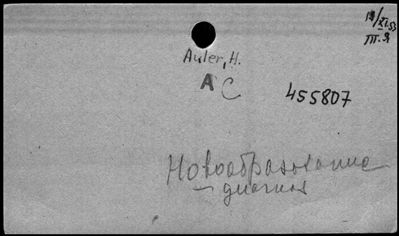 18/XI.53
III. 9.
Auler, H.
A C
455807
Новообразование
– диагноз